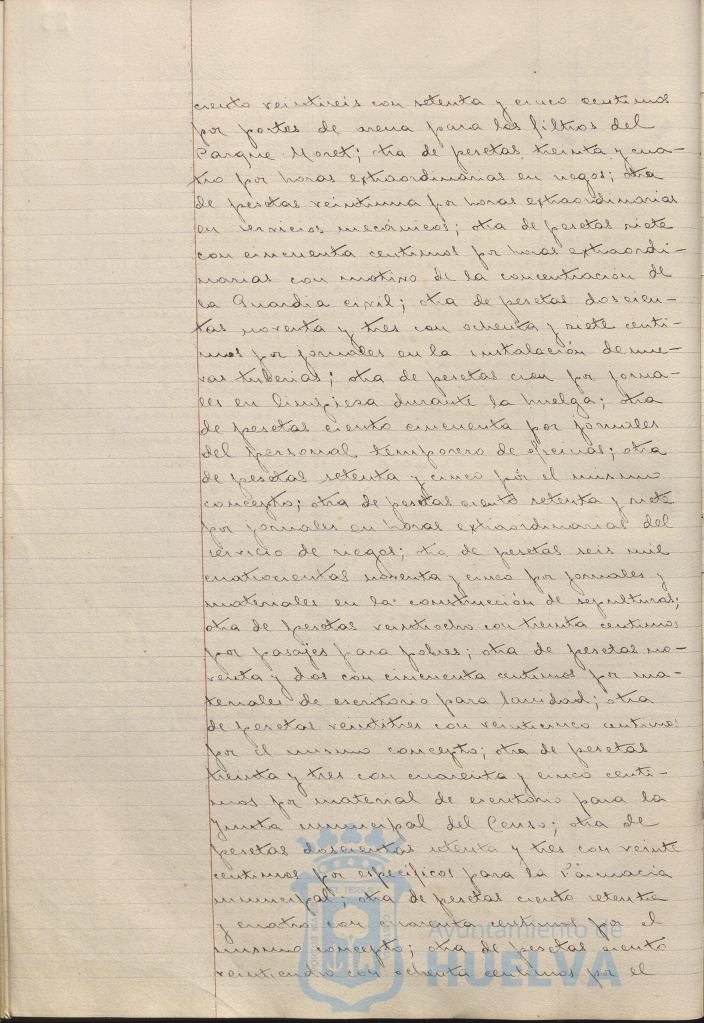 ciento veintiseis con setenta y cinco centimos
por portes de arena para los filtros del
Parque Moret; otra de pesetas treinta y cua-
tro por horas extraordinarias en riegos; otra
de pesetas veintiuna por horas extraordinarias
en servicios mecánicos; otra de pesetas siete
con cincuenta centimos por horas extraordi-
narias con motivo de la concentración de
la Guardia civil; otra de pesetas doscien-
tas noventa y tres con ochenta y siete centi-
mos por jornales en la instalación de nue-
vas tuberias; otra de pesetas cien por jorna-
les en limpieza durante la huelga; otra
de pesetas ciento cincuenta por jornales
del personal temporero de oficinas; otra
de pesetas setenta y cinco por el mismo
concepto; otra de pesetas ciento setenta y siete
por jornales en horas extraordinarias del
servicio de riegos; otra de pesetas seis mil
cuatrocientas noventa y cinco por jornales y
materiales en la construcción de sepulturas;
otra de pesetas veintiocho con treinta centimos
por pasajes para pobres; otra de pesetas no-
venta y dos con cincuenta centimos por ma-
teriales de escritorio para Sanidad; otra
de pesetas veintitres con veinticinco centimos
por el mismo concepto; otra de pesetas
treinta y tres con cuarenta y cinco centi-
mos por material de escritorio para la
Junta municipal del Censo; otra de
pesetas doscientas setenta y tres con veinte
centimos por especificos para la Farmacia
municipal; otra de pesetas ciento setenta
y cuatro con cuarenta centimos por el
mismo concepto; otra de pesetas ciento
veinticuatro con ochenta centimos por el
Ayuntamiento de
HUELVA